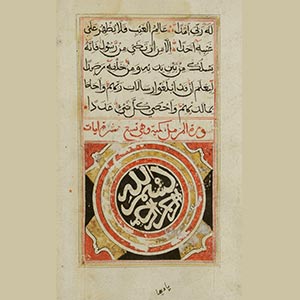 له ربي امدا عالم الغيب فلا يظهر على
غيبه احدا الا من ارتضى من رسول فانه
يسلك من بين يديه ومن خلفه رصدا
ليعلم ان قد ابلغوا رسالات ربهم واحاط
بما لديهم واحصى كل شيء عددا
سورة المزمل مكية وهي تسع عشر ايات
بسم الله الرحمن الرحيم
يا ايها